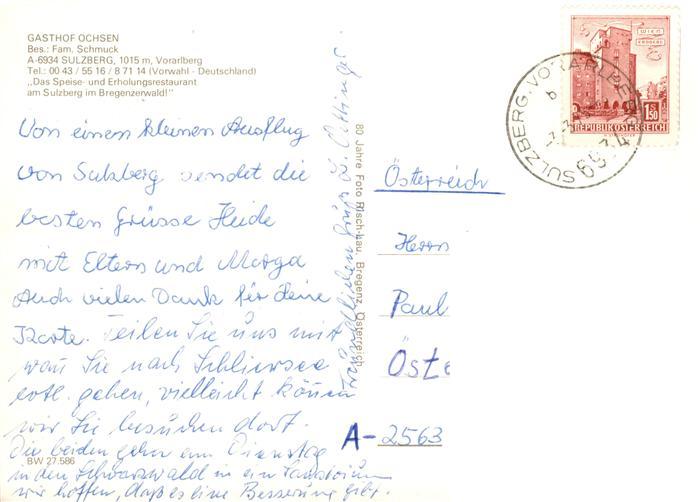 GASTHOF OCHSEN
Bes.: Fam. Schmuck
A-6934 SULZBERG, 1015 m, Vorarlberg
Tel.: 00 43 / 55 16 / 8 71 14 (Vorwahl - Deutschland)
„Das Speise- und Erholungsrestaurant
am Sulzberg im Bregenzerwald!"
Von einem kleinen Ausflug
von Sulzberg sendet die
besten Grüsse Heide
mit Eltern und Marga
Auch vielen Dank für deine
Karte. Teilen Sie uns mit
wan Sie nach Schliersee
evtl. gehen, vielleicht können
wir Sie besuchen dort.
Die beiden gehn am Dienstag
in den Schwarzwald in ein Sanatorium
wir hoffen, daß es eine Besserung gibt.
BW 27.586
80 Jahre Foto Risch-Lau, Bregenz, Österreich
WIEN
REPUBLIK ÖSTERREICH
1.50
SULZBERG, VORARLBERG
6934
Österreich
Herrn
Paul
Öste
A-2563